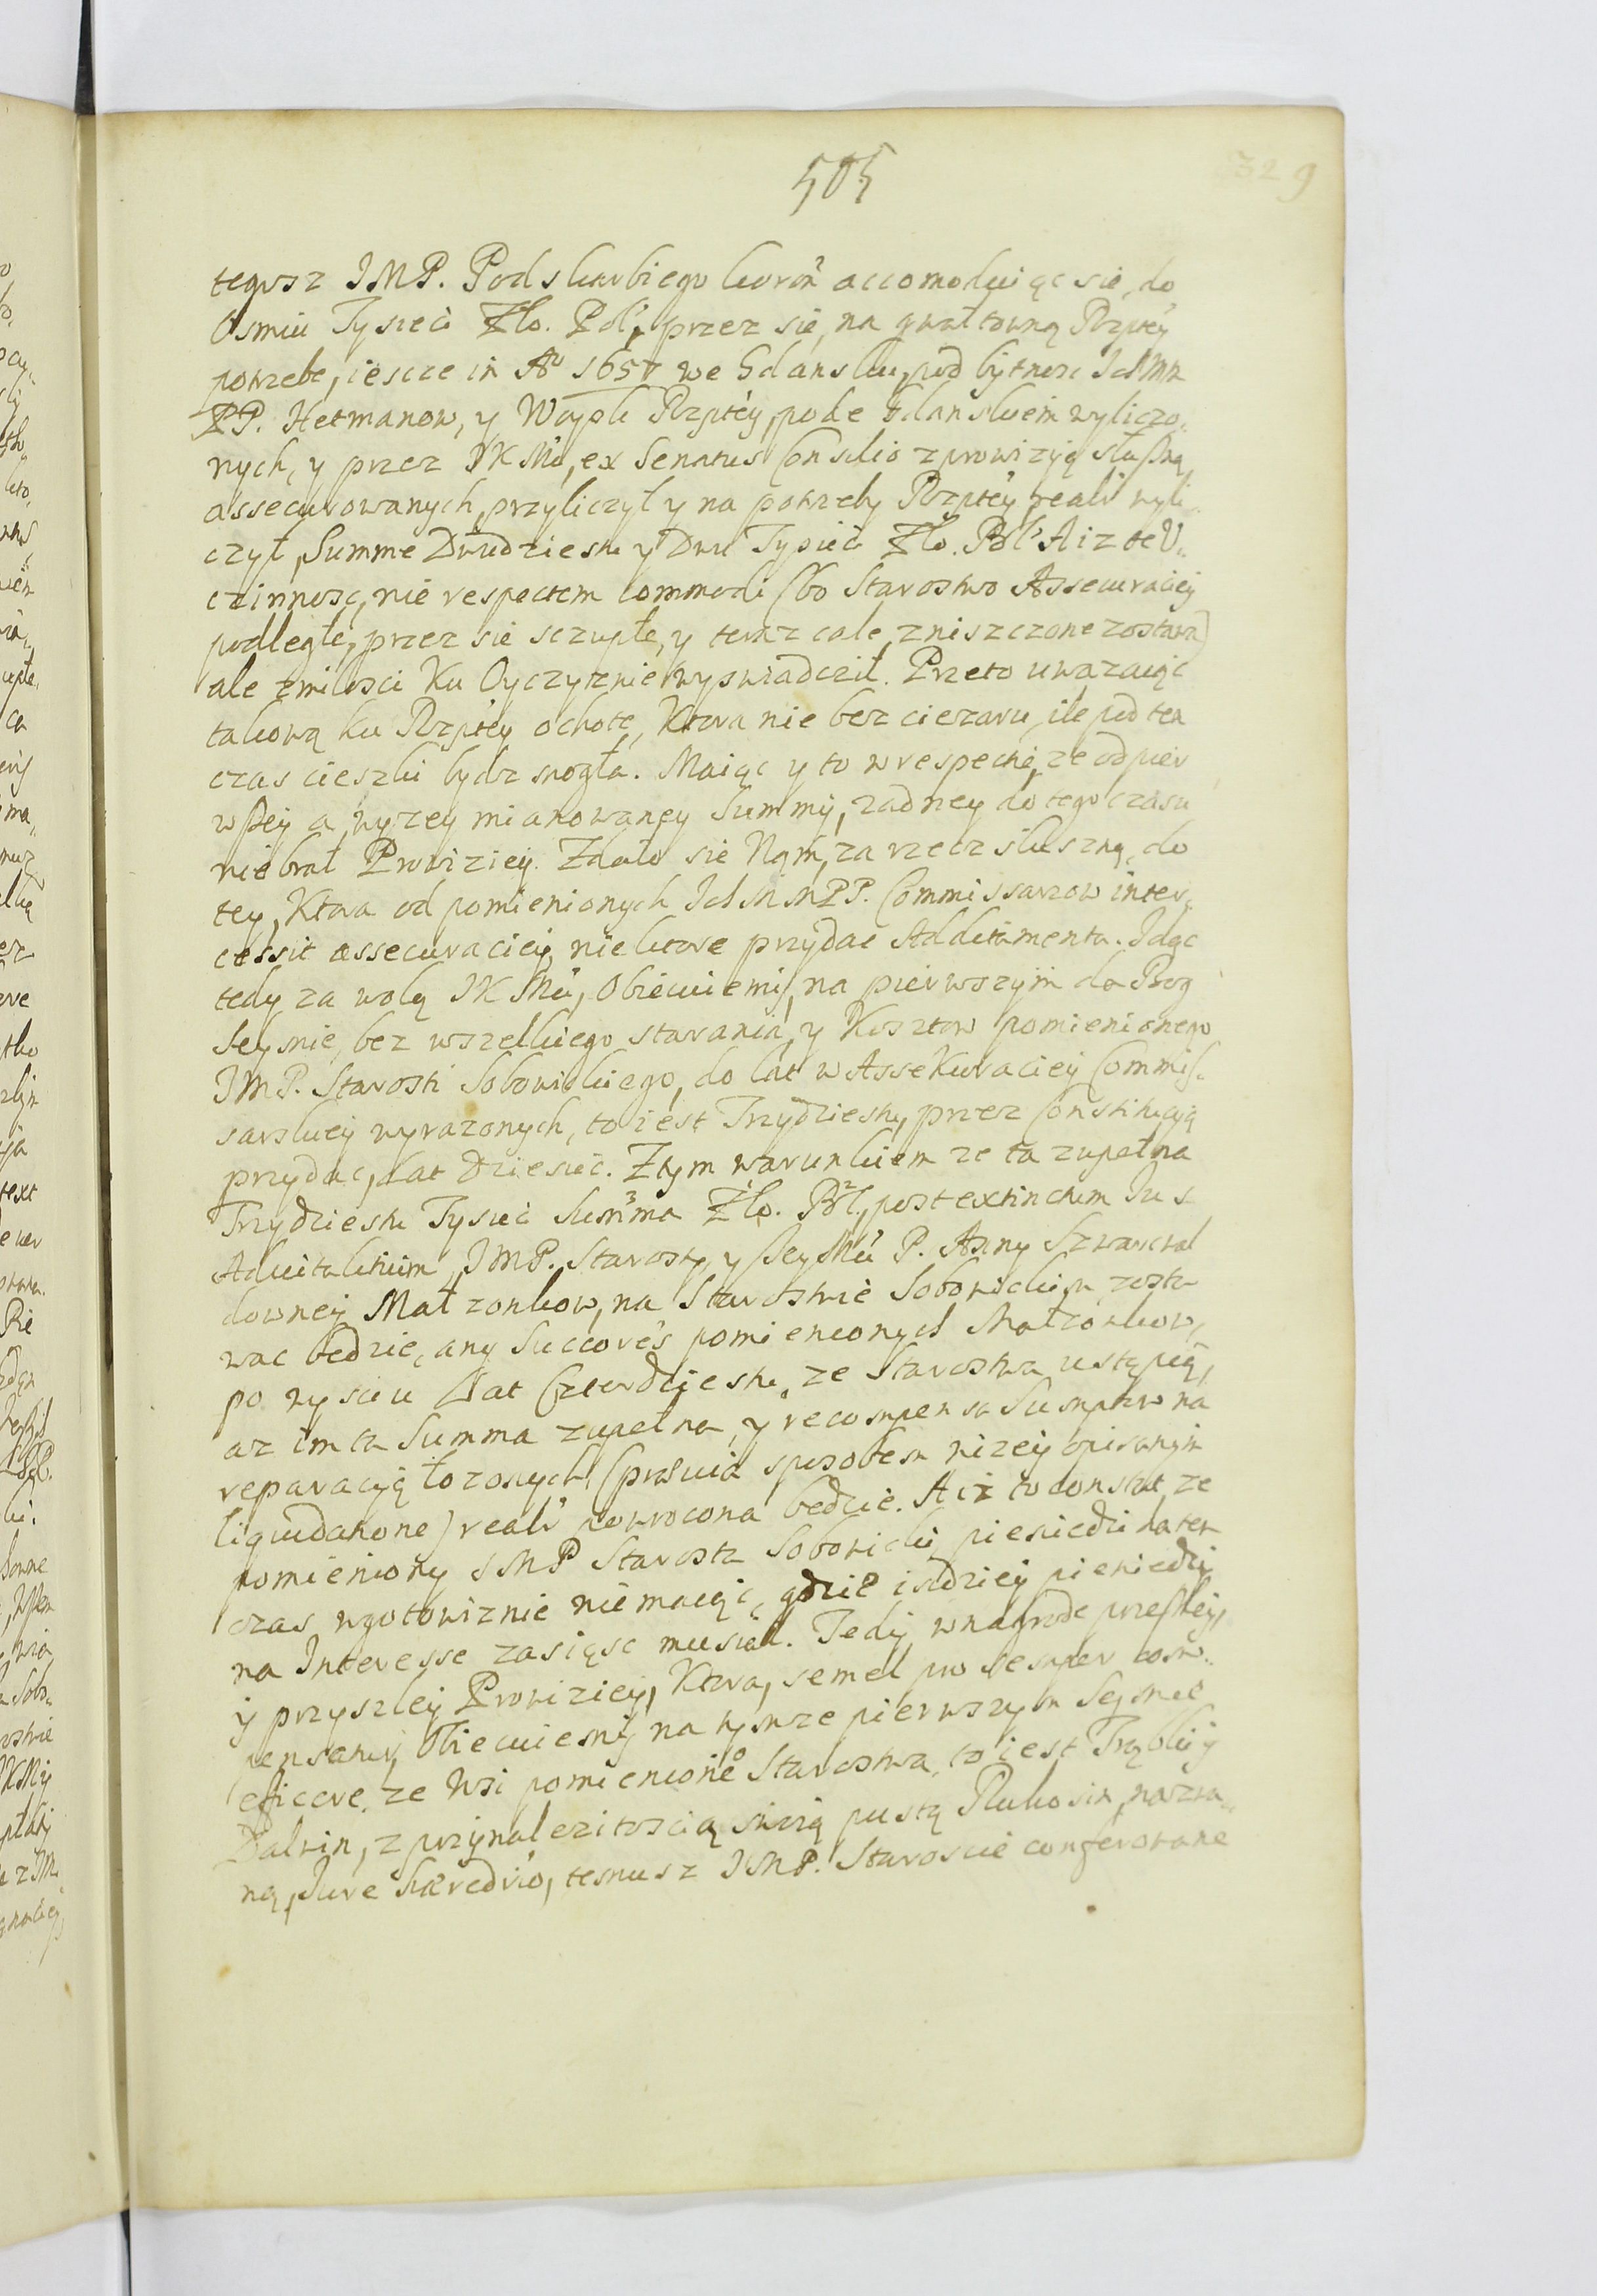 505
329
tegosz JMP. Podskarbiego koron accomoduiąc sie, do
Osmiu Tysieci Zło. Pol, przez sie, na gwałtowną Rzptey
potrzebe, iescze in Ao 1657 we Gdansku, pod bytnosc IchMM
PP. Hetmanow, y Woysk Rzptey, pode Gdanskiem wyliczo„
nych, y przez JKMci, ex Senatus Consilio z prowizyą słußną
assecurowanych, przyliczył y na potrzeby Rzptey reali wyli„
czył, Summe Dwudziestu y Dwu Tysieci Zło. Pol. A iz te U„
czinnosc, nie respectem commodi (bo Starostwo Assecuraciey
podległe, przez sie sczupłe, y teraz cale zniszczone zostawa)
ale z miłosci Ku Oyczyznie wyswiadcził. Przeto uwazaiąc
takową ku Rzptey ochote, Ktora nie bez ciezaru, ile pod ten
czas cieszki bydz mogła. Maiąc y to w respecie, ze od pier
wßey a wyzey mianowaney Summy, zadney do tego czasu
nie brał Prowiziey. Zdało sie Nąm, za rzecz słuszną, do
tey, Ktora od pomienionych IchMMPP. Commissarzow inter„
cessit assecuraciey, niektore przydac Additamenta. Idąc
tedy za wolą JKMci, Obiecuiemy, na pierwszym da Bog
Seymie, bez wszelkiego starania, y Kosztow pomienionego
JMP. Starosti Sobowickiego, do lat w Assekuraciey Commis„
sarskiey wyrazonych, to iest Trzydziestu, przez Constitucyą
przydac, Lat Dziesiec. Z tym warunkiem ze ta zupełna
Trzydziestu Tysieci Summa Zło. Pol., post extinctum Jus
Advitalitium, JMP. Starosty, y JeyMci P. Anny Szwarcwal
downey Małzonkow, na Starostwie Sobowickim zosta
wac bedzie, any Succores pomienionych Małzonkow,
po wysciu Lat Czterdziestu, ze Starostwa ustąpią,
az im ta Summa zupełna, y recompensa Sumptow na
reparacyą łozonych, (prawia sposobem nizey opisanym
liquidanone) reali powrocona bedzie. A iz to constat, ze
pomieniony JMP Starosta Sobowicki, pieniedzi na ten
czas w gotowiznie nie maiąc, gdzie indziey pieniedzy
na Interesse zasiąsc musiał. Tedy w nagrode przeßłey,
y przyszley Prowiziey, Ktora, semel pro semper com„
pensatur, Obiecuiemy na tymze pierwszym Seymie
efficere, ze Wsi pomienione Starostwa, to iest Trąbky
Dalwin, z przynalezitoscią swoią pustą Rukosin, nazwa„
ną, Jure hæredrio, temusz JMP. Staroscie conferowane